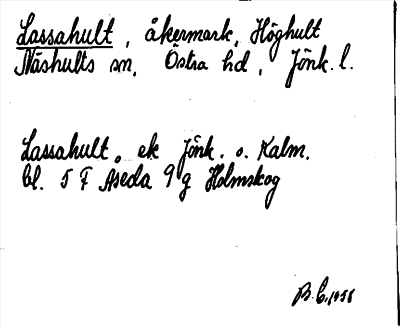 Lassahult, åkermark, Höghult
Näshults sn, Östra hd, Jönk. l.
Lassahult, ek Jönk. o. Kalm.
bl. 5 F Aseda 9 g Holmskog
B. C. 1958